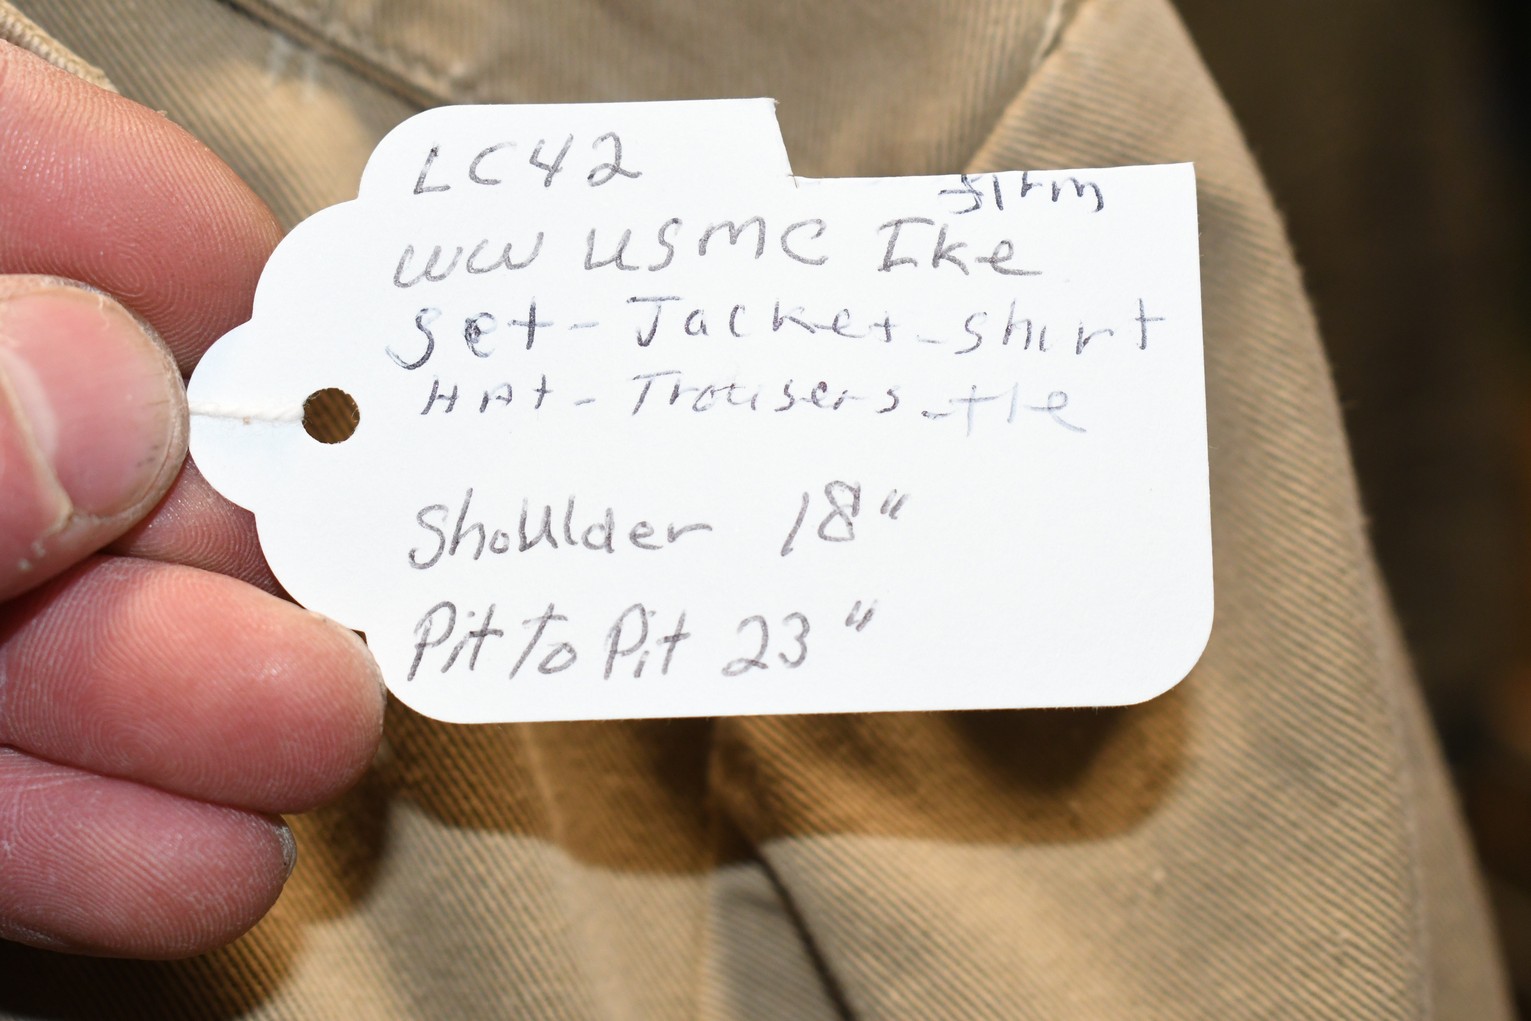 LC42
WW USMC Ike
Set - Jacket - Shirt
HAt - Trousers - tie
Shoulder 18"
Pit to Pit 23"